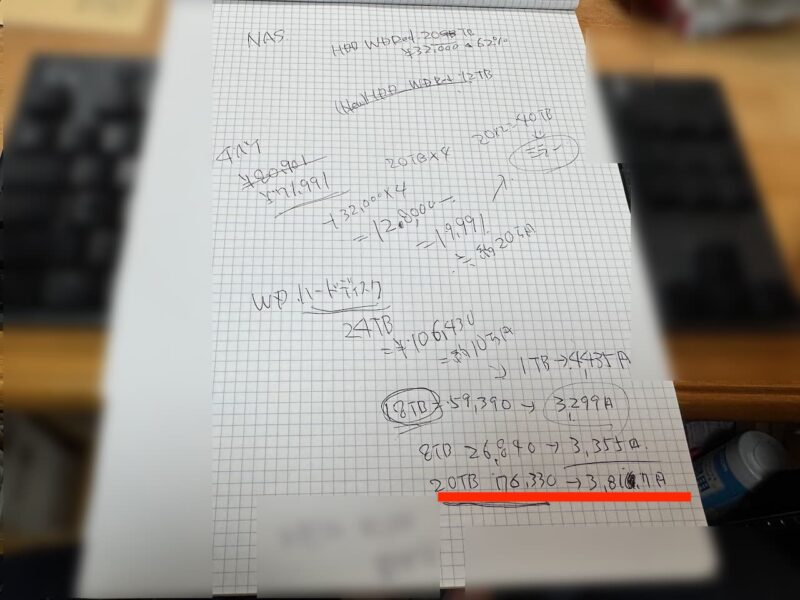 NAS
HDD WDRed 20TB
¥32,000 62%
(New) HDD WDRed 12TB
¥20901
¥71,991
20TB×4
20TB→40TB
ミラー
→32,000×4
=12.8000
=19,991
≒約20万円
WD.ハードディスク
24TB
=¥106,430
=約10万円
→1TB→4,435円
18TB→59,390→3,299円
8TB 26,840→3,355円
20TB 76,330→3,817円